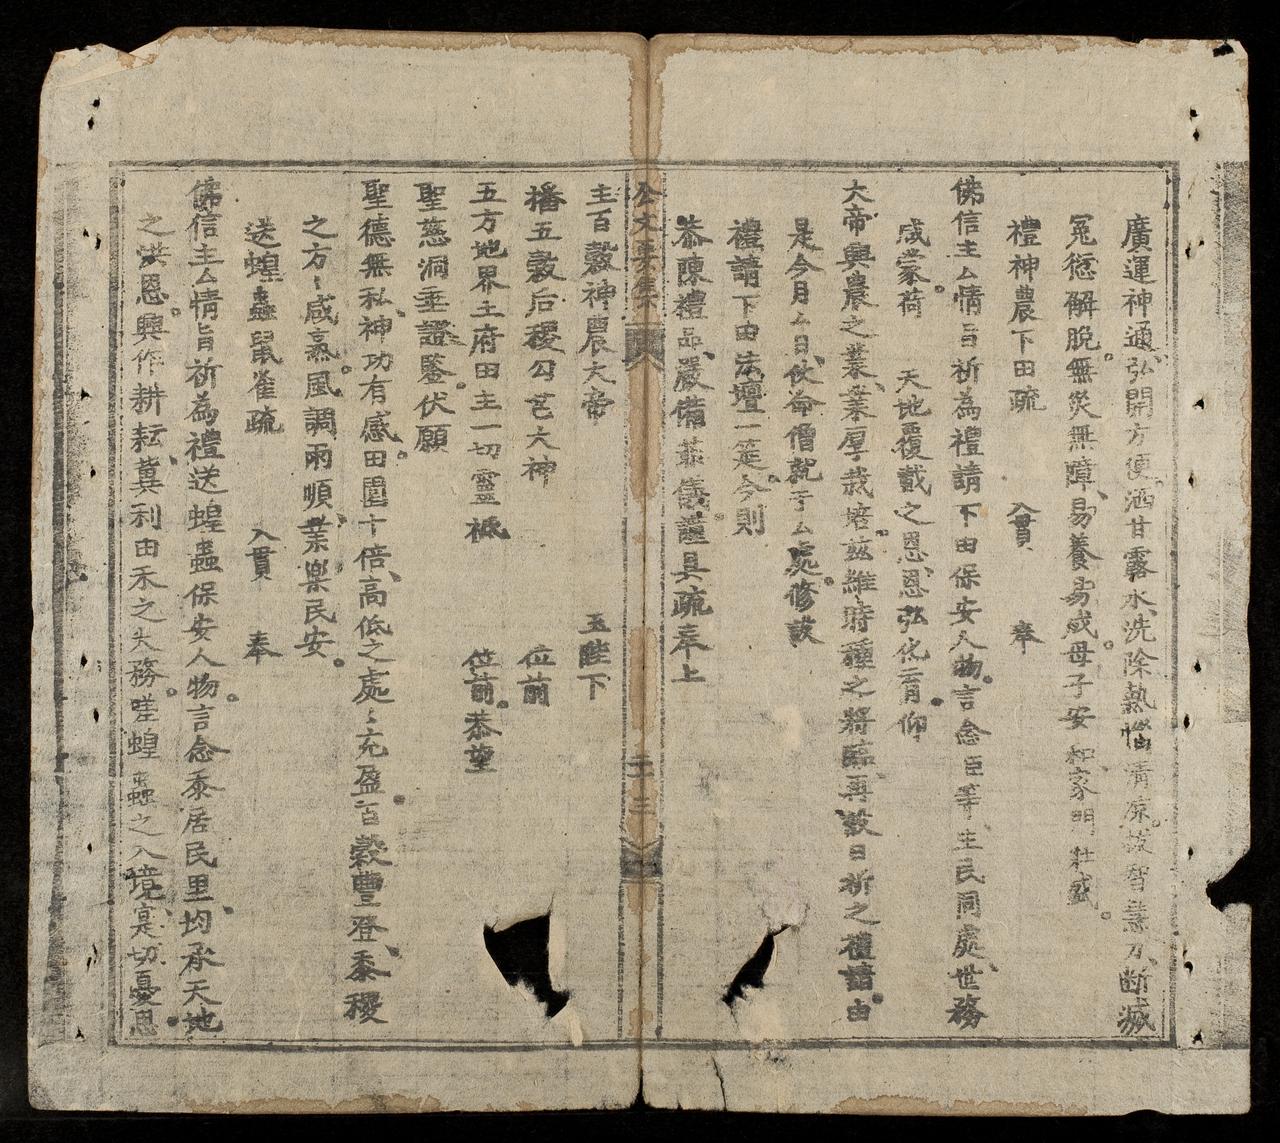 廣運神通弘開方便洒甘露水洗除熱惱清凉拔智慧刀断滅
冤愆解脫。無災無障易養易成。母子安和家門壮盛。
禮神農下田疏　　入貫　　奉
佛信主厶情旨祈為禮請下田保安人物。言念臣等生民同處世務
咸蒙荷。天地覆載之恩恩弘化育仰
大帝興農之業業厚栽培。茲維時種之將臨再設日祈之禮請。由
是今月厶日伏命僧就于厶處。修設
禮請下田法壇一筵。今則
恭陳禮品嚴備菲儀。謹具疏奉上
公文要集下
二三
主百穀神農大帝　　玉陛下
播五穀后稷勾芒大神　　位前
五方地界土府田主一切靈祗　　位前。恭望
聖慈洞垂證鑒。伏願
聖德無私神功有感。田園十倍高低之處〻充盈。百穀豐登黍稷
之方〻咸熟。風調雨順業樂民安。
送蝗蟲鼠雀疏　　入貫　　奉
佛信主厶情旨祈為禮送蝗蟲保安人物。言念黍居民里均承天地
之洪恩。興作耕耘冀利田禾之大務。嗟蝗蟲之入境寔切憂思。